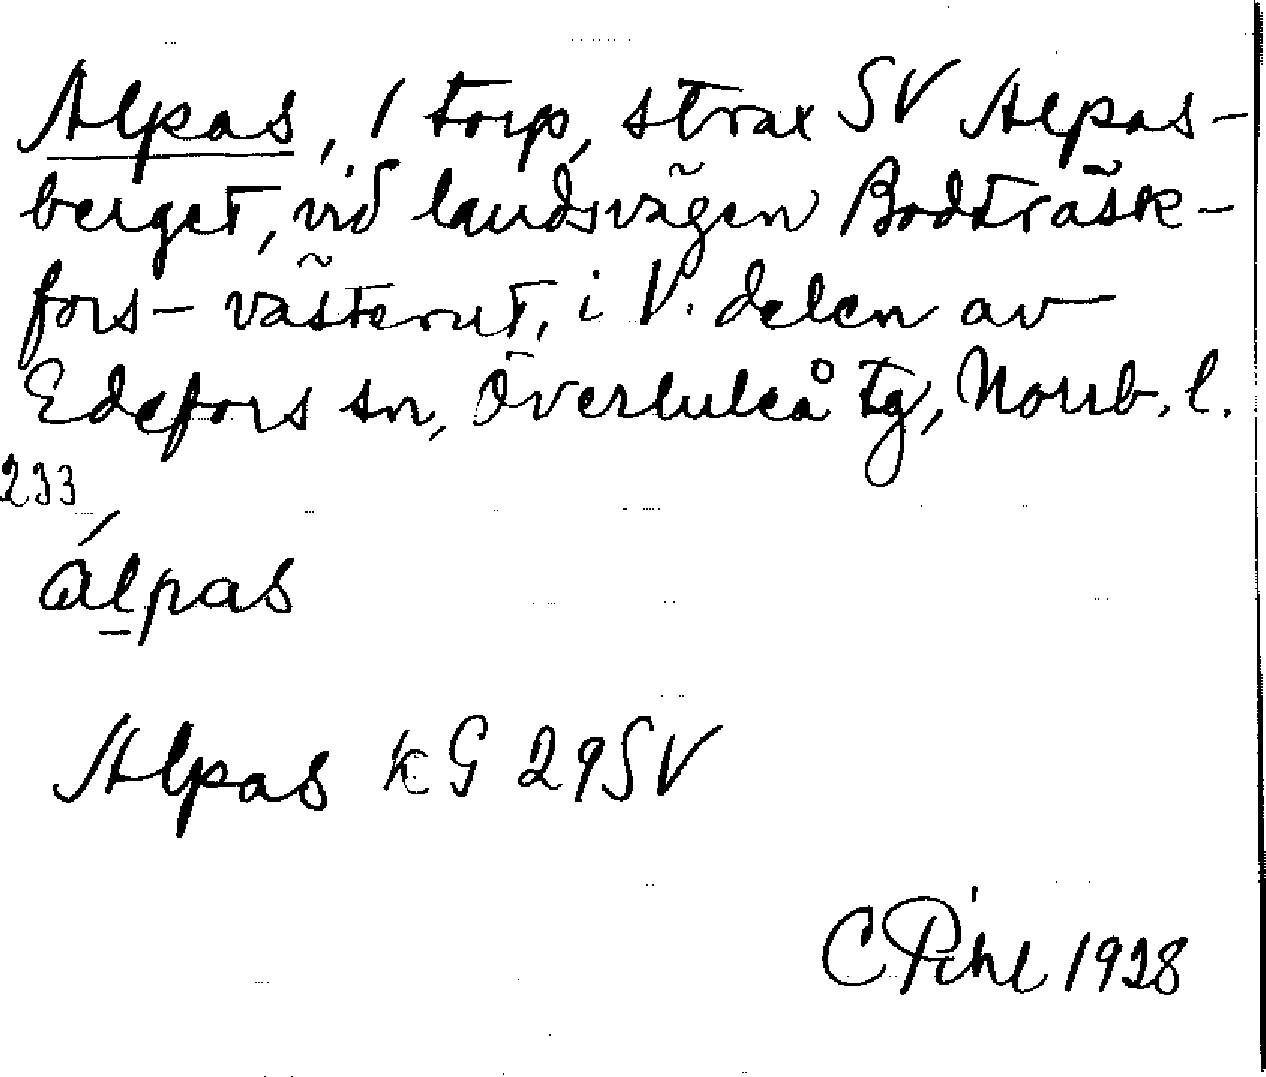 Alpas, 1 torp, strax SV Alpas-
berget, vid landsvägen Bodträsk-
fors - västerut, i V. delen av
Edefors sn, Överluleå tg, Norrb. l.
233
álpas
Alpas kG 29SV
C Pihl 1928